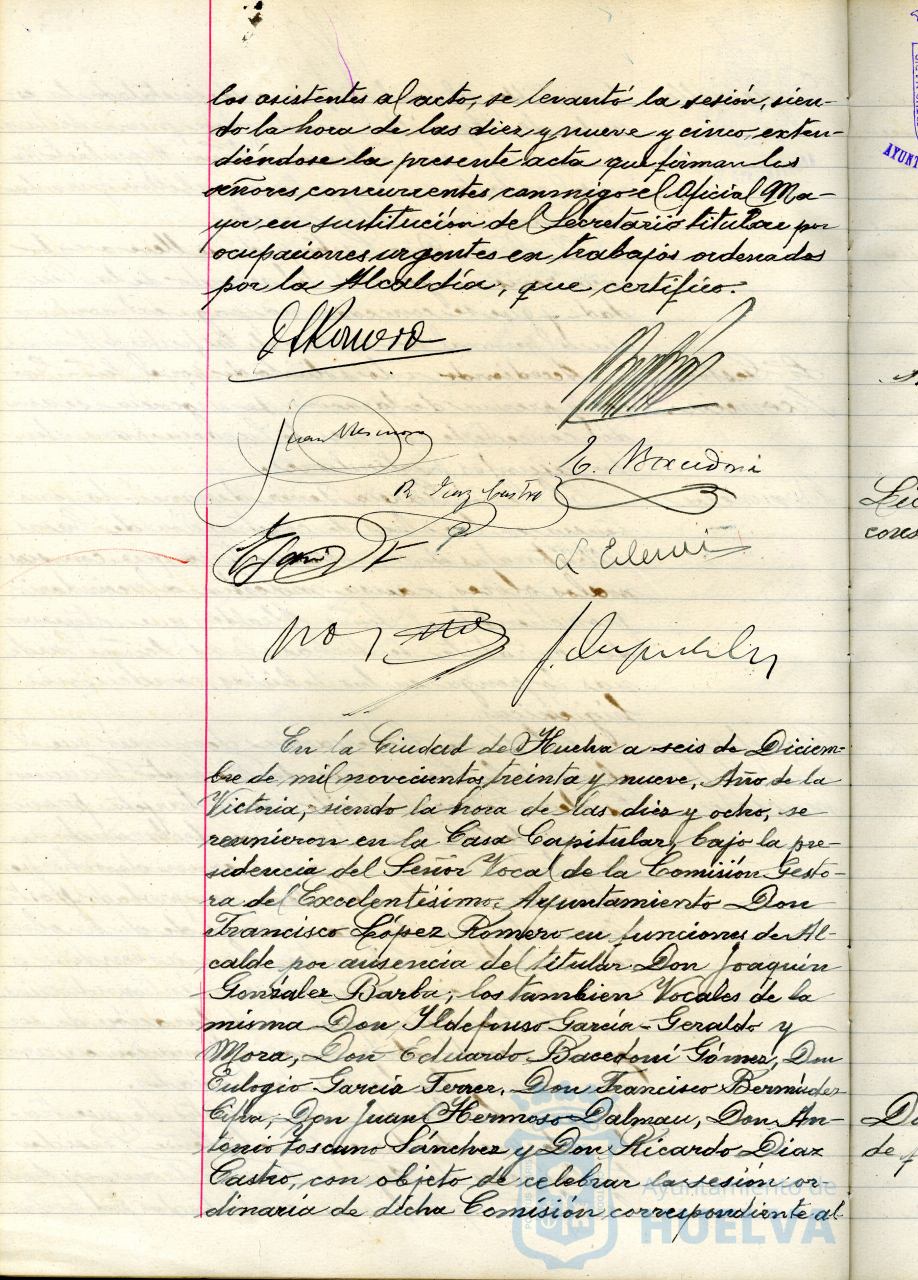 los asistentes al acto, se levantó la sesión, sien-
do la hora de las diez y nueve y cinco, exten-
diéndose la presente acta que firman los
señores concurrentes conmigo el Oficial Ma-
yor en sustitución del Secretario titular por
ocupaciones urgentes en trabajos ordenados
por la Alcaldía, que certifico.
Juan Hermoso
E. Bacedoni
R. Diaz Castro
En la Ciudad de Huelva a seis de Diciem-
bre de mil novecientos treinta y nueve, Año de la
Victoria, siendo la hora de las diez y ocho, se
reunieron en la Casa Capitular, bajo la pre-
sidencia del Señor Vocal de la Comisión Gesto-
ra del Excelentísimo Ayuntamiento Don
Francisco López Romero en funciones de Al-
calde por ausencia del titular Don Joaquín
González Barba, los tambien Vocales de la
misma Don Ildefonso García-Geraldo y
Mora, Don Eduardo Bacedoni Gómez, Don
Eulogio García Ferrer, Don Francisco Bermúdez
Don Juan Hermoso Dalmau, Don An-
tonio Toscano Sánchez y Don Ricardo Diaz
Castro, con objeto de celebrar la sesión or-
dinaria de dicha Comisión correspondiente al
Ayuntamiento de
HUELVA